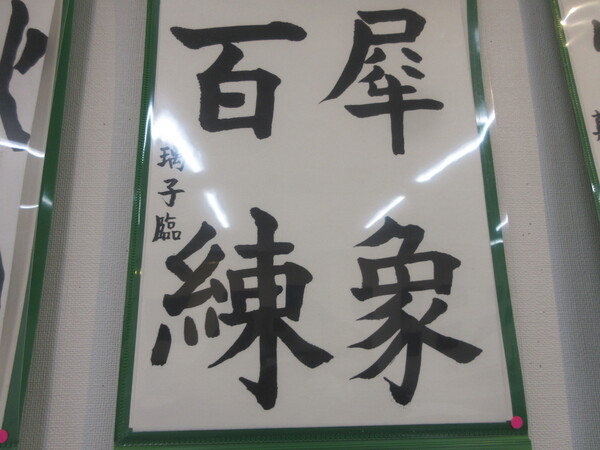 犀象
百練
瑀子臨